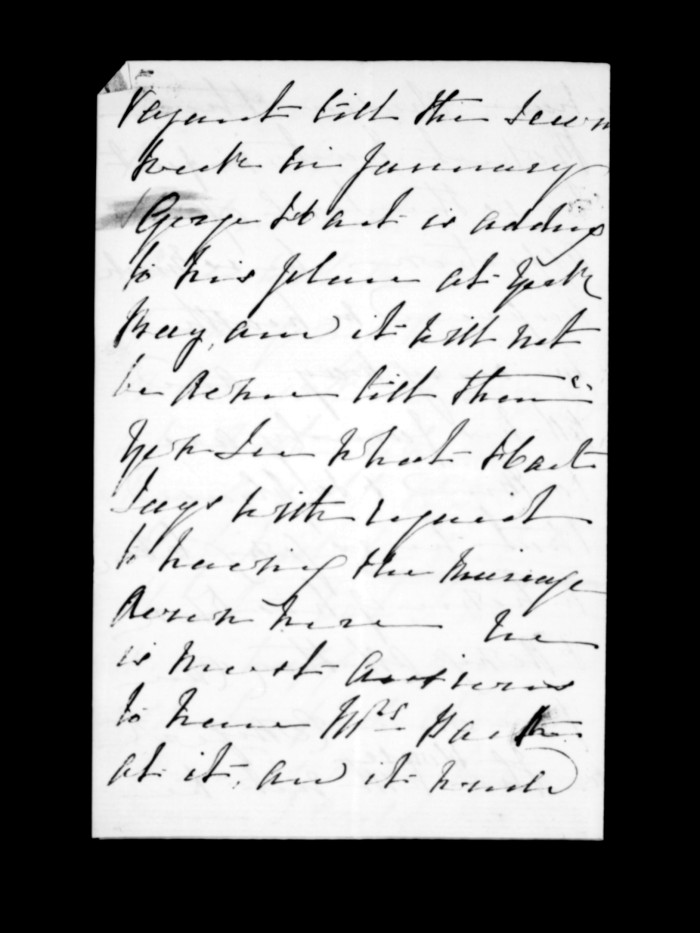 Vacant till the Second
week in January
George Hart is adding
to his place at York
Bay, and it will not
be done till then
you see what Hart
says with regard
to having the marriage
down here he
is most anxious
to have Mrs Hart
at it, and it would